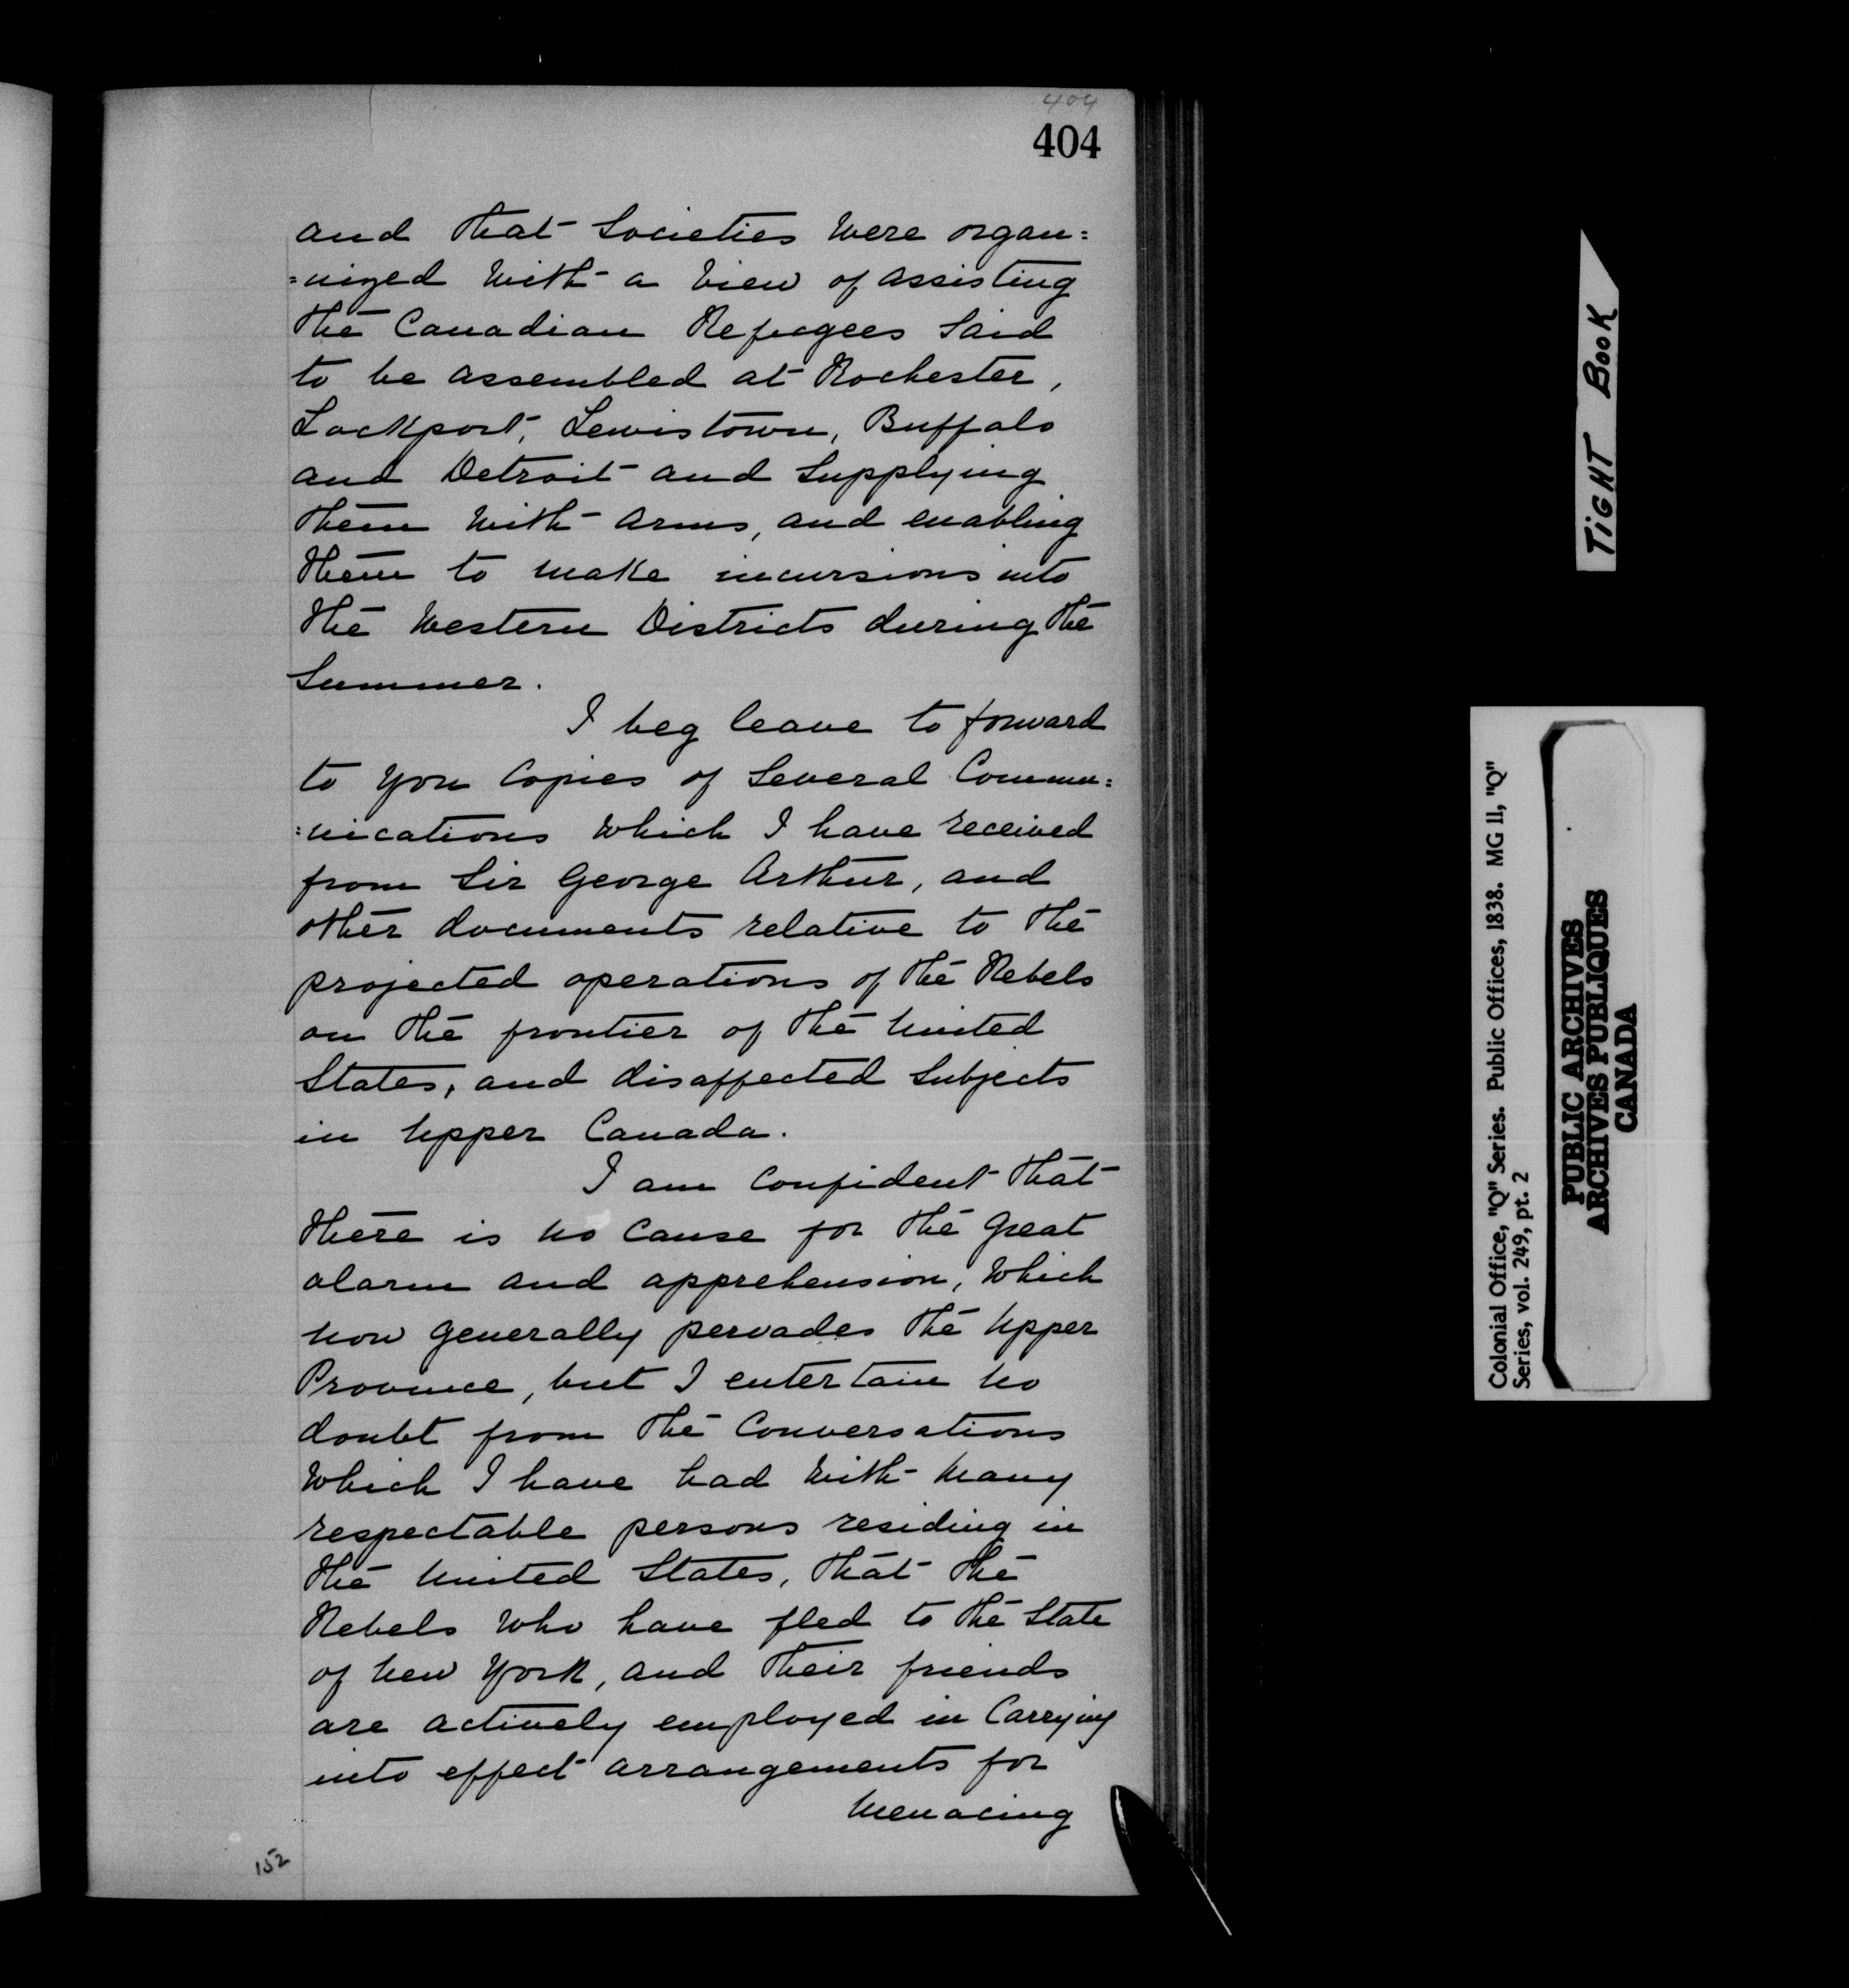 404
404
and that Societies were organ=
=nized with a view of assisting
the Canadian Refugees said
to be assembled at Rochester,
Lockport, Lewistown, Buffalo
and Detroit and supplying
them with arms, and enabling
them to make incursions into
the Western Districts during the
Summer.
I beg leave to forward
to you Copies of Several Commu=
=nications which I have received
from Sir George Arthur, and
other documents relative to the
projected operations of the Rebels
on the frontier of the United
States, and disaffected Subjects
in Upper Canada.
I am Confident that
there is no Cause for the great
alarm and apprehension, which
now generally pervades the Upper
Province, but I entertain no
doubt from the Conversations
which I have had with many
respectable persons residing in
the United States, that the
Rebels who have fled to the State
of New York, and their friends
are actively employed in Carrying
into effect arrangements for
menacing
152
TiGHT BOOK
Colonial Office, "Q" Series. Public Offices, 1838. MG 11, "Q"
Series, vol. 249, pt. 2
PUBLIC ARCHIVES
ARCHIVES PUBLIQUES
CANADA